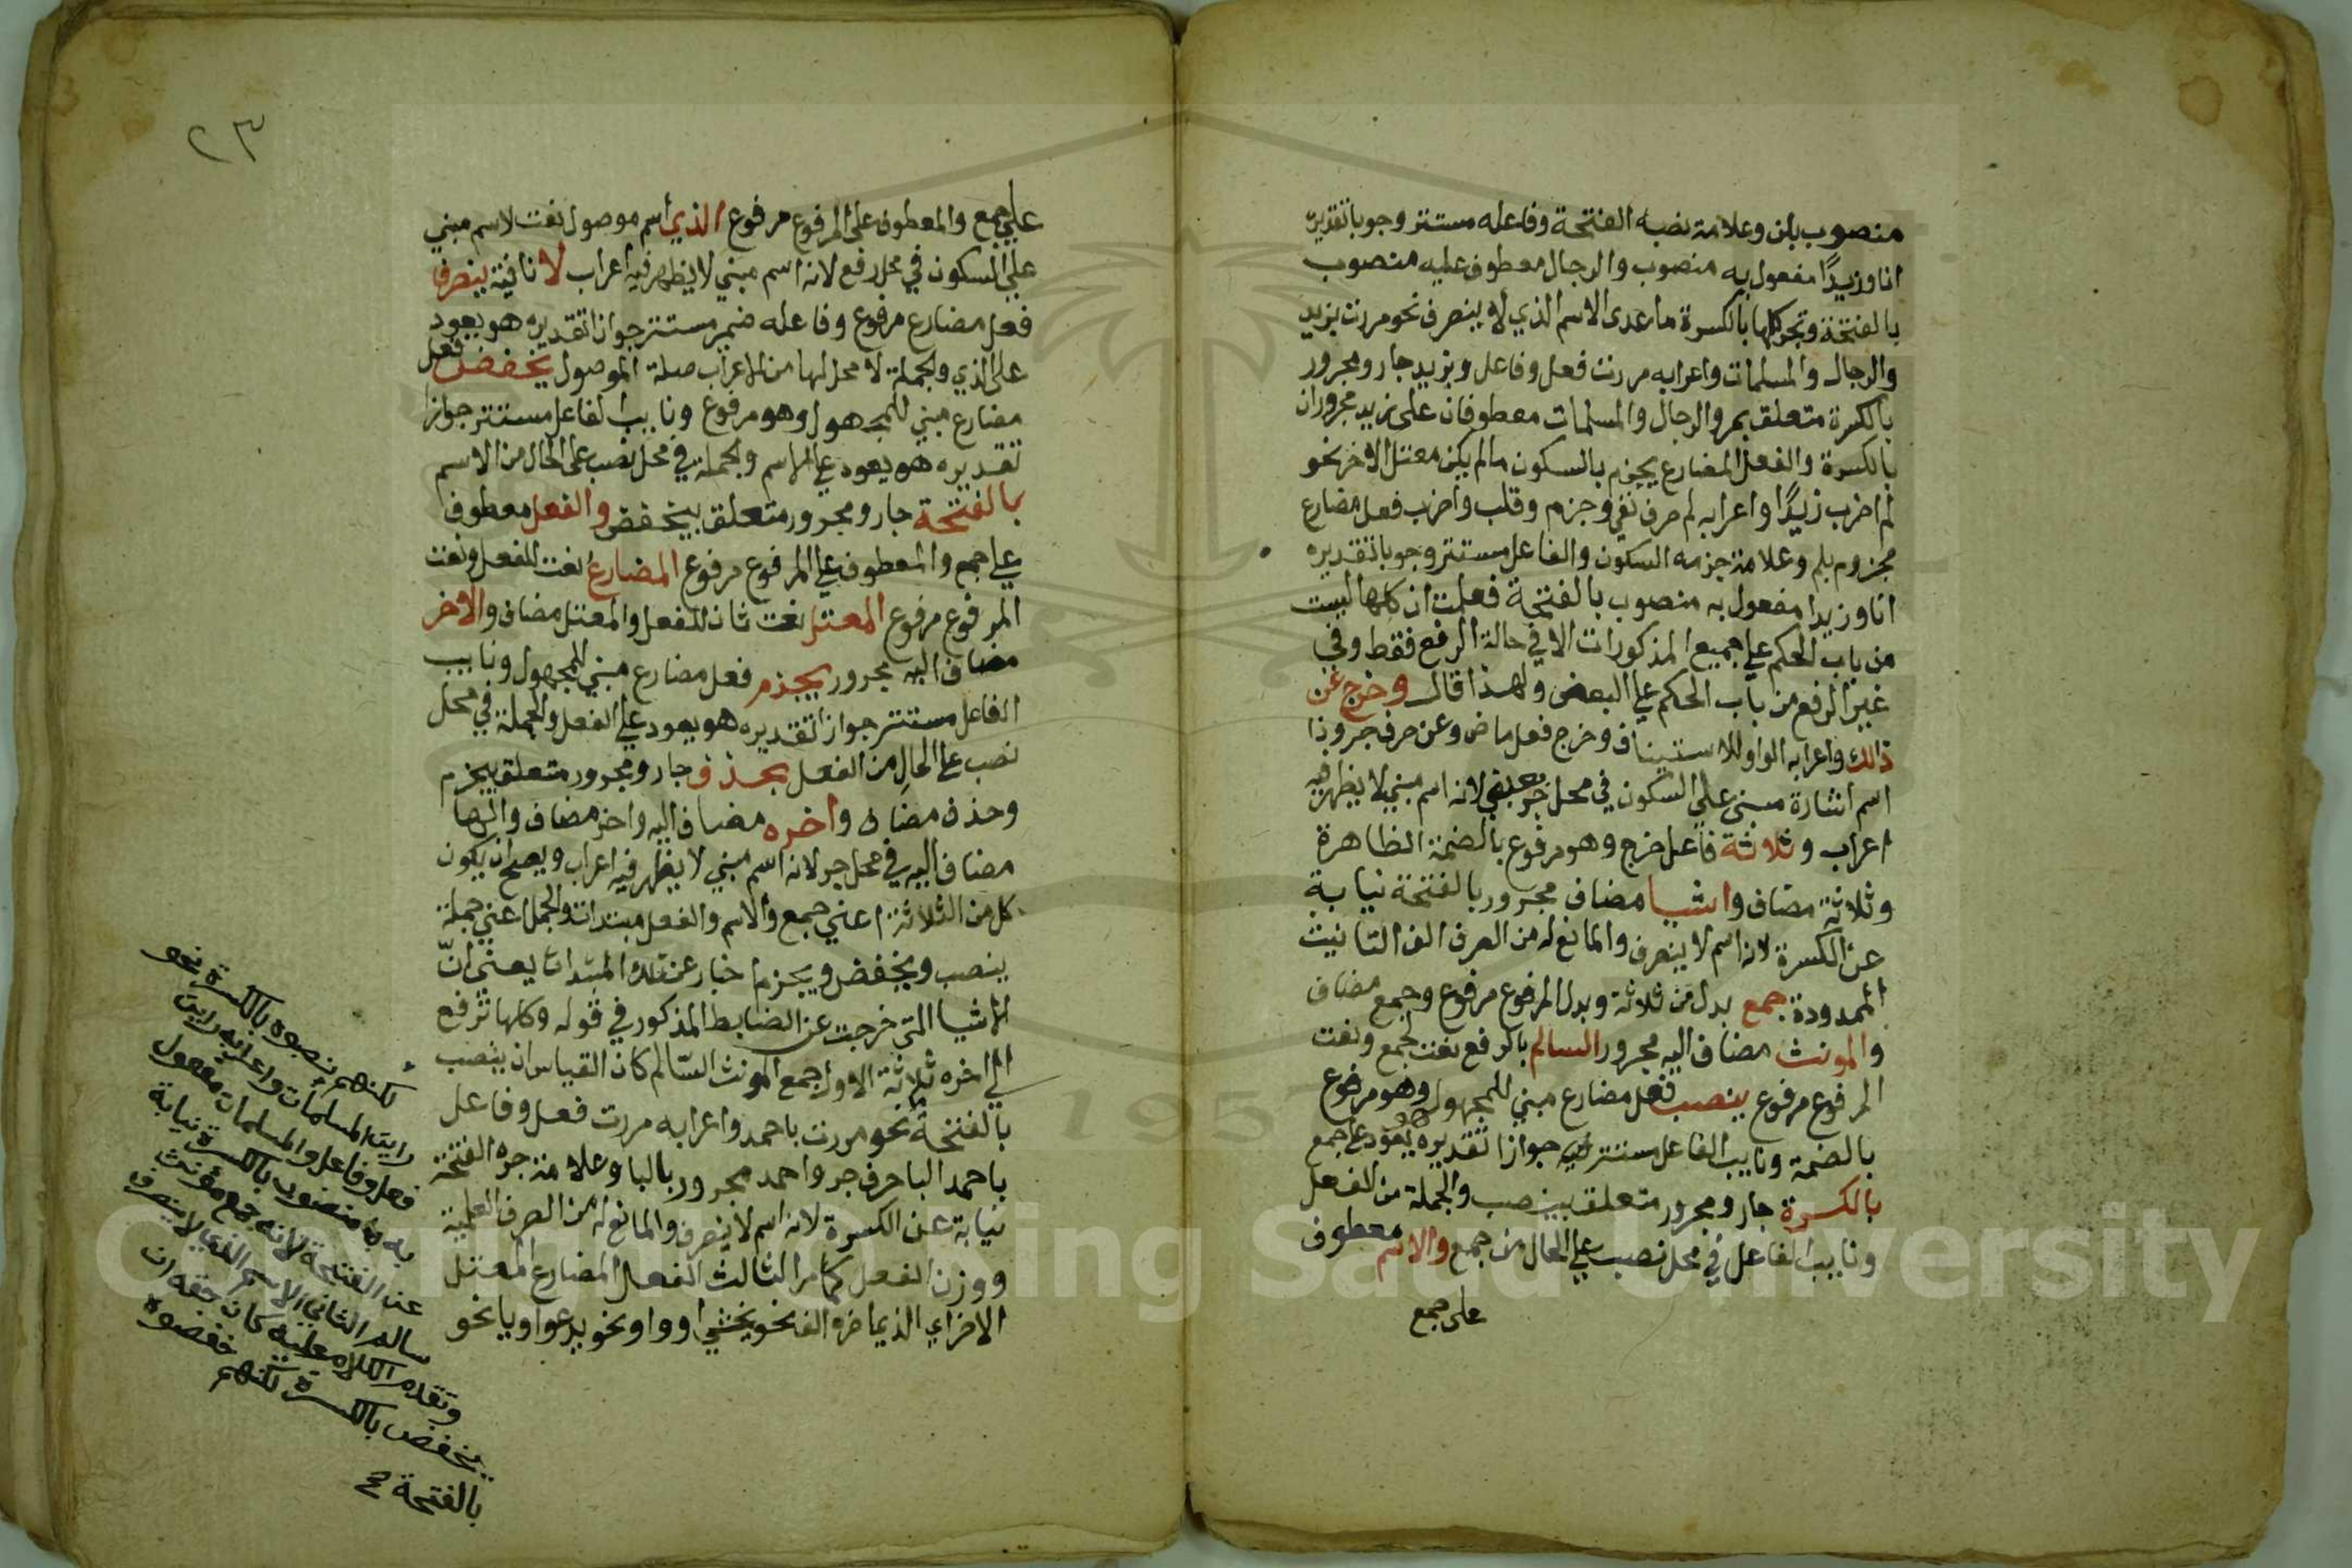 منصوب بلن وعلامة نصبه الفتحة وفاعله مستتر وجوبا تقديره
انا وزيدًا مفعول به منصوب والرجال معطوف عليه منصوب
بالفتحة وتجر كلها بالكسرة ما عدى الاسم الذي لا ينصرف نحو مررت بزيد
والرجال والمسلمات واعرابه مررت فعل وفاعل وبزيد جار ومجرور
بالكسرة متعلق بمر والرجال والمسلمات معطوفان على زيد مجروران
بالكسرة والفعل المضارع يجزم بالسكون ما لم يكن معتل الاخر نحو
لم اضرب زيدًا واعرابه لم حرف نفي وجزم وقلب واضرب فعل مضارع
مجزوم بلم وعلامة جزمه السكون والفاعل مستتر وجوبا تقديره
انا وزيدا مفعول به منصوب بالفتحة فعلمت ان كلها ليست
من باب الحكم علي جميع المذكورات الا في حالة الرفع فقط وفي
غير الرفع من باب الحكم علي البعض ولهذا قال وخرج عن
ذالك واعرابه الواو للاستيناف وخرج فعل ماض وعن حرف جر وذا
اسم اشارة مبني علي السكون في محل جر بعن لانه اسم مبني لا يظهر فيه
اعراب وثلاثة فاعل خرج وهو مرفوع بالضمة الظاهرة
وثلاثة مضاف واشيا مضاف مجرور بالفتحة نيابة
عن الكسرة لانه اسم لا ينصرف والمانع له من الصرف الف التانيث
الممدودة جمع بدل من ثلاثة وبدل المرفوع مرفوع وجمع مضاف
والمونث مضاف اليه مجرور السالم بالرفع نعت لجمع ونعت
المرفوع مرفوع ينصب فعل مضارع مبني للمجهول وهو مرفوع
بالضمة ونايب الفاعل مستتر فيه جوازا تقديره هو يعود علي جمع
بالكسرة جار ومجرور متعلق بينصب والجملة من الفعل
ونايب الفاعل في محل نصب علي الحال من جمع والاسم معطوف
على جمع
٢٣
علي جمع والمعطوف على المرفوع مرفوع الذي اسم موصول نعت لاسم مبني
علي السكون في محل رفع لانه اسم مبني لا يظهر فيه اعراب لا نافية ينصرف
فعل مضارع مرفوع وفاعله ضمير مستتر جوازا تقديره هو يعود
على الذي والجملة لا محل لها من الاعراب صلة الموصول يخفض فعل
مضارع مبني للمجهول وهو مرفوع ونايب الفاعل مستتر جوازا
تقديره هو يعود علي الاسم والجملة في محل نصب على الحال من الاسم
بالفتحة جار ومجرور متعلق بيخفض والفعل معطوف
علي جمع والمعطوف علي المرفوع مرفوع المضارع نعت للفعل ونعت
المرفوع مرفوع المعتل نعت ثان للفعل والمعتل مضاف والاخر
مضاف اليه مجرور يجذم فعل مضارع مبني للمجهول ونايب
الفاعل مستتر جوازا تقديره هو يعود علي الفعل والجملة في محل
نصب على الحال من الفعل بحذف جار ومجرور متعلق بيجزم
وحذف مضاف واخره مضاف اليه واخر مضاف والها
مضاف اليه في محل جر لانه اسم مبني لا يظهر فيه اعراب ويصح ان يكون
كل من الثلاثة اعني جمع والاسم والفعل مبتدات والجمل اعني جملة
ينصب ويخفض ويجزم اخبار عن تلك المبتدات يعني انّ
الاشيا التي خرجت عن الضابط المذكور في قوله وكلها ترفع
الي اخره ثلاثة الاول جمع المونث السّالم كان القياس ان ينصب
بالفتحة نحو مررت باحمد واعرابه مررت فعل وفاعل
باحمد البا حرف جر واحمد مجرور بالبا وعلامة جره الفتحة
نيابة عن الكسرة لانه اسم لا ينصرف والمانع له من الصرف العلمية
ووزن الفعل كما مر الثالث الفعل المضارع المعتل
الاخر اي الذي اخره الف نحو يخشي او واو نحو يدعوا ويا نحو
لكنهم نصبوه بالكسرة نحو
رايت المسلمات واعرابه رايت
فعل وفاعل والمسلمات مفعول
به منصوب بالكسرة نيابة
عن الفتحة لانه جمع مؤنث
سالم الثاني الاسم الذي لا ينصرف
وتقدم الكلام عليه كان حقه ان
يخفض بالكسرة لكنهم خفضوه
بالفتحة